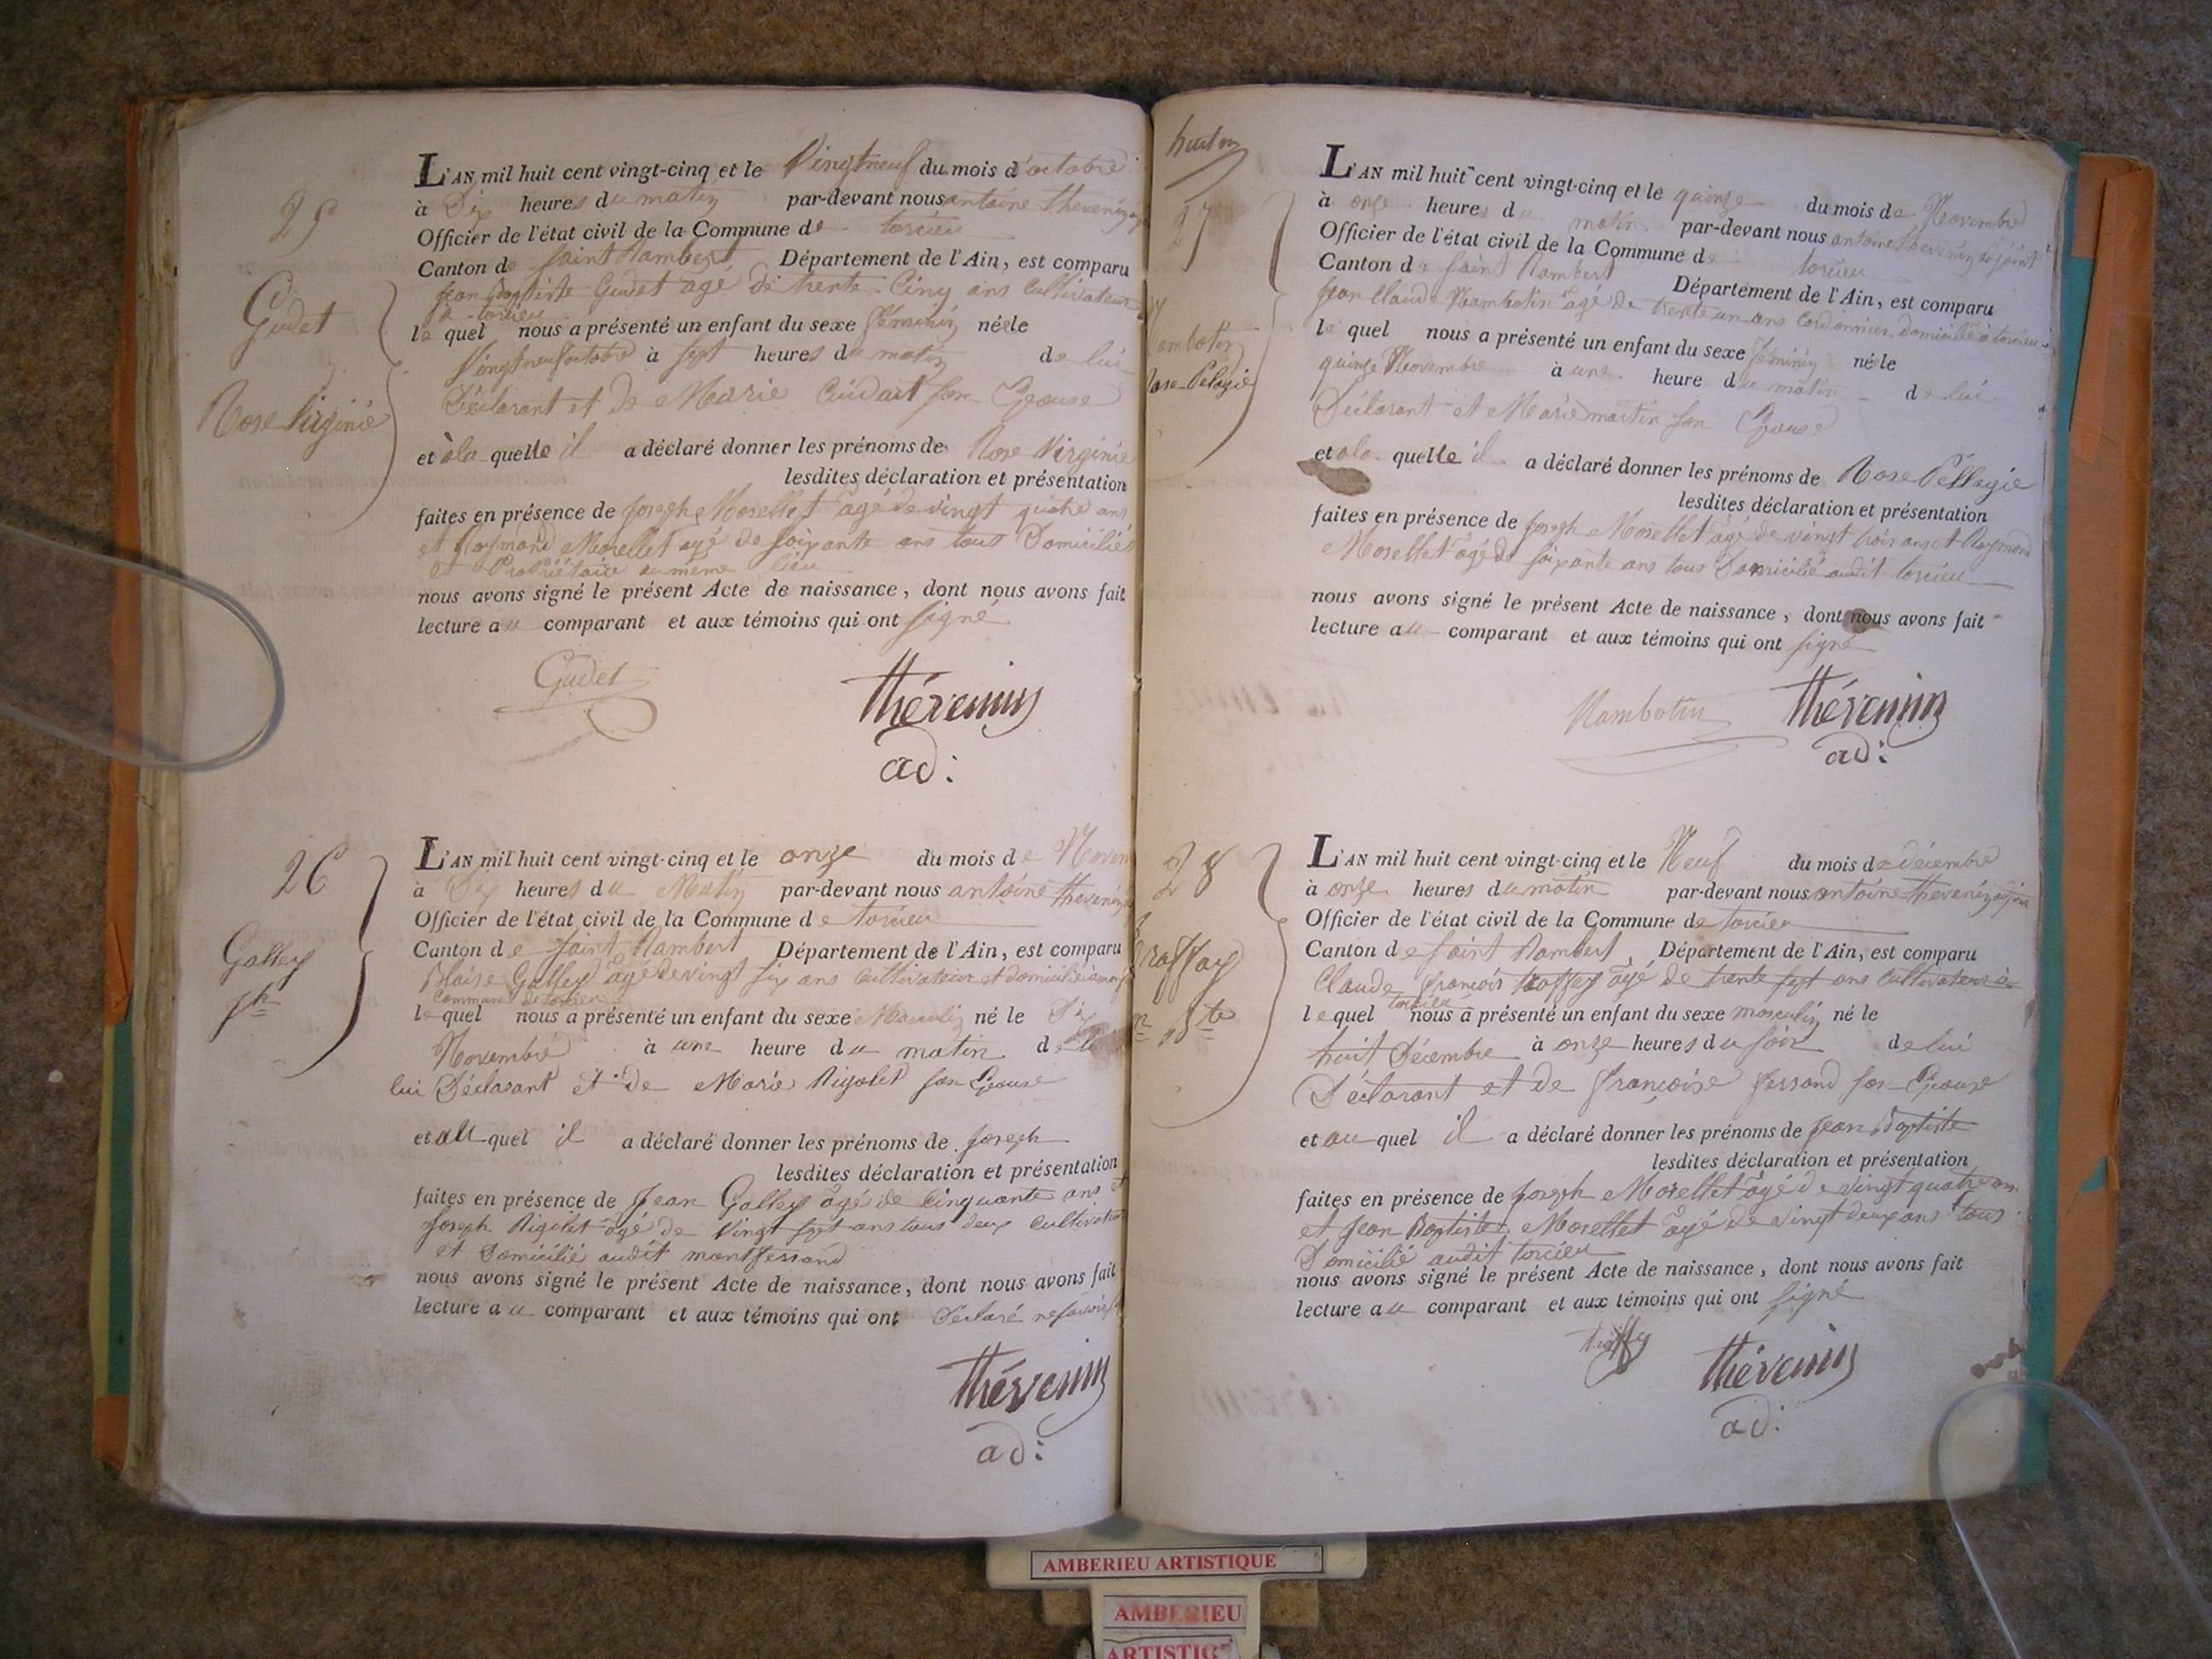 25
Gudet
Rose Virginie
L'AN mil huit cent vingt-cinq et le Vingtneuf du mois d'octobre
à Dix heures du matin par-devant nous antoine thevenin
Officier de l'état civil de la Commune de torcieu
Canton de Saint Rambert Département de l'Ain, est comparu
Jean Baptiste Gudet agé de trente Cinq ans Cultivateur
a torcieu
le quel nous a présenté un enfant du sexe féminin né le
Vingtneuf octobre à sept heures du matin de lui
Déclarant et de Marie Cuidait son Epouse
et à la quelle il a déclaré donner les prénoms de Rose Virginie
lesdites déclaration et présentation
faites en présence de Joseph Morellet agé de vingt quatre ans
et Raymond Morellet agé de soixante ans tous Domiciliés
et Propriétaire au même lieu
nous avons signé le présent Acte de naissance, dont nous avons fait
lecture au comparant et aux témoins qui ont signé
Gudet
thévenin
ad:
26
Galley
jh
L'AN mil huit cent vingt-cinq et le onze du mois de Novem
à Dix heures du Matin par-devant nous antoine thevenin
Officier de l'état civil de la Commune de torcieu
Canton de Saint Rambert Département de l'Ain, est comparu
Blaise Galley agé de vingt six ans cultivateur et domicilié à
Commune de torcieu
le quel nous a présenté un enfant du sexe Masculin né le Dix
Novembre à une heure du matin de
lui Déclarant et de Marie Rigolet son Epouse
et au quel il a déclaré donner les prénoms de Joseph
lesdites déclaration et présentation
faites en présence de Jean Galley âgé de Cinquante ans et
Joseph Rigolet agé de Vingt sept ans tous deux cultivateur
et Domicilié audit montferrand
nous avons signé le présent Acte de naissance, dont nous avons fait
lecture au comparant et aux témoins qui ont Déclaré ne savoir
thévenin
ad:
27
Rambotin
Rose-Pelagie
L'AN mil huit cent vingt-cinq et le quinze du mois de Novembre
à onze heures du matin par-devant nous antoine thevenin adjoint
Officier de l'état civil de la Commune de torcieu
Canton de Saint Rambert Département de l'Ain, est comparu
Jean Claude Rambotin agé de trente un ans Cordonnier domicilié à torcieu
le quel nous a présenté un enfant du sexe féminin né le
quinze Novembre à une heure du matin de lui
Déclarant et Marie martin son Epouse
et a la quelle il a déclaré donner les prénoms de Rose Pellagie
lesdites déclaration et présentation
faites en présence de Joseph Morellet agé de vingt trois ans et Raymond
Morellet âgé de soixante ans tous Domicilié audit torcieu
nous avons signé le présent Acte de naissance, dont nous avons fait
lecture au comparant et aux témoins qui ont signé
Rambotin
thévenin
ad:
28
L'AN mil huit cent vingt-cinq et le Neuf du mois de décembre
à onze heures du matin par-devant nous antoine thevenin adjoin
Officier de l'état civil de la Commune de torcieu
Canton de Saint Rambert Département de l'Ain, est comparu
Claude françois traffey âgé de trente sept ans Cultivateur à
torcieu
le quel nous a présenté un enfant du sexe masculin né le
huit Décembre à onze heures du soir de lui
Déclarant et de françoise ferrand son Epouse
et au quel il a déclaré donner les prénoms de Jean Baptiste
lesdites déclaration et présentation
faites en présence de Joseph Morellet âgé de vingt quatre ans
et Jean Baptiste Morellet agé de vingt deux ans tous
Domicilié audit torcieu
nous avons signé le présent Acte de naissance, dont nous avons fait
lecture au comparant et aux témoins qui ont signé
thévenin
ad:
AMBERIEU ARTISTIQUE
AMBERIEU
ARTISTIC